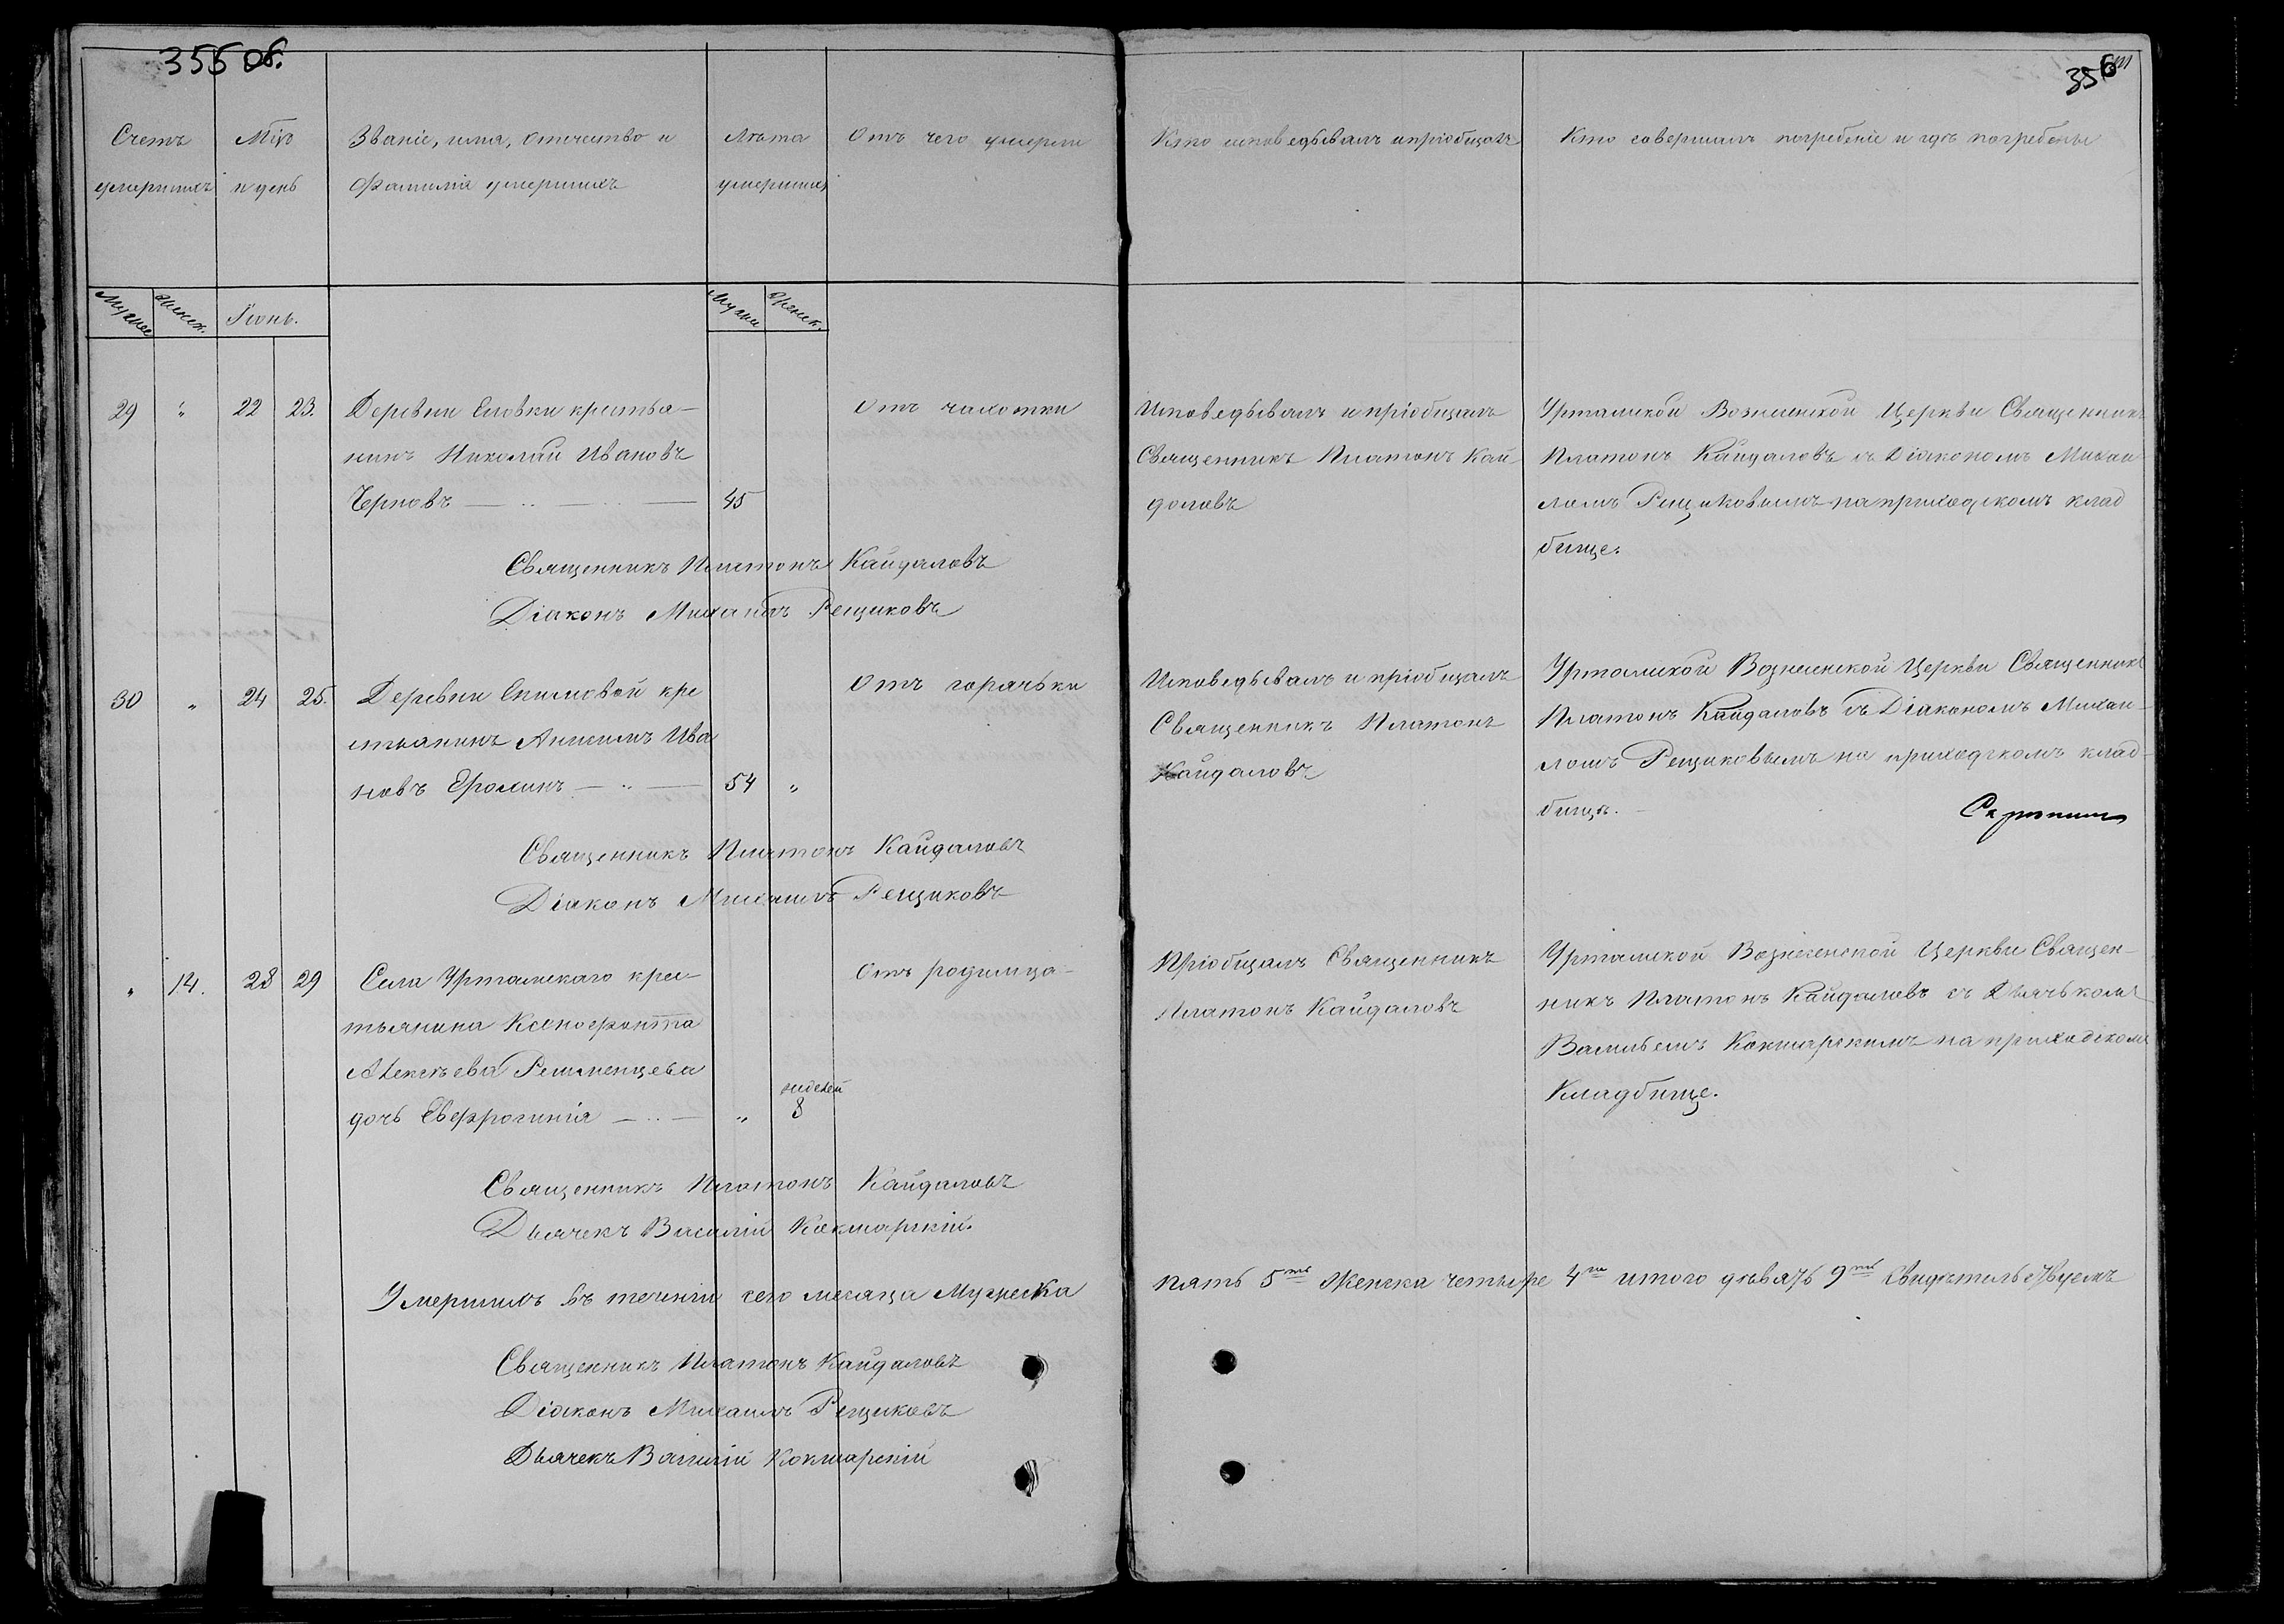 355 об.
356
Счетъ умершихъ
Мѣц. и день
Званіе, имя, отчество и фамилія умершихъ
Лѣта умершихъ
Отъ чего умерли
Кто исповедывалъ и пріобщалъ
Кто совершалъ погребеніе и гдѣ погребены
Мужеск.
Женск.
Іюнь.
Мужск.
Женск.
29 " 22 23.
Деревни Еловки крестья-
нинъ Николай Ивановъ
Черновъ 45
Отъ чахотки
Исповедывалъ и пріобщалъ
Священникъ Платонъ Кай
даловъ
Урталиской Вознесенской Церкви Священникъ
Платонъ Кайдаловъ съ Діакономъ Михаи
ломъ Рещиковымъ на приходскомъ клад
бище.
Священникъ Платонъ Кайдаловъ
Діаконъ Михаилъ Рещиковъ
30 " 24 25.
Деревни Екимовой кре
стьянинъ Анисимъ Ива
новъ Ерохинъ 54 "
Отъ горячьки
Исповедывалъ и пріобщалъ
Священникъ Платонъ
Кайдаловъ
Урталиской Вознесенской Церкви Священникъ
Платонъ Кайдаловъ съ Діакономъ Михаи-
ломъ Рещиковымъ на приходскомъ клад-
бищѣ.
Священникъ Платонъ Кайдаловъ
Діаконъ Михаилъ Рещиковъ
" 14. 28 29
Села Урталискаго крес-
тьянина Ксенофонта
Алексѣева Решменцева
дочь Евфрогинія " неделей 8
Отъ родимца
Пріобщалъ Священникъ
Платонъ Кайдаловъ
Урталиской Вознесенской Церкви Священ-
никъ Платонъ Кайдаловъ съ Дьячькомъ
Васильемъ Кокшарскимъ на приходскомъ
Кладбище.
Священникъ Платонъ Кайдаловъ
Дьячекъ Василій Кокшарскій.
Умершимъ въ теченіи сего месяца Мужеска
пять 5ть Женска четыре 4ре итого дѣвять 9ть свидѣтельствуемъ
Священникъ Платонъ Кайдаловъ
Діаконъ Михаилъ Рещиковъ
Дьячекъ Василій Кокшарскій